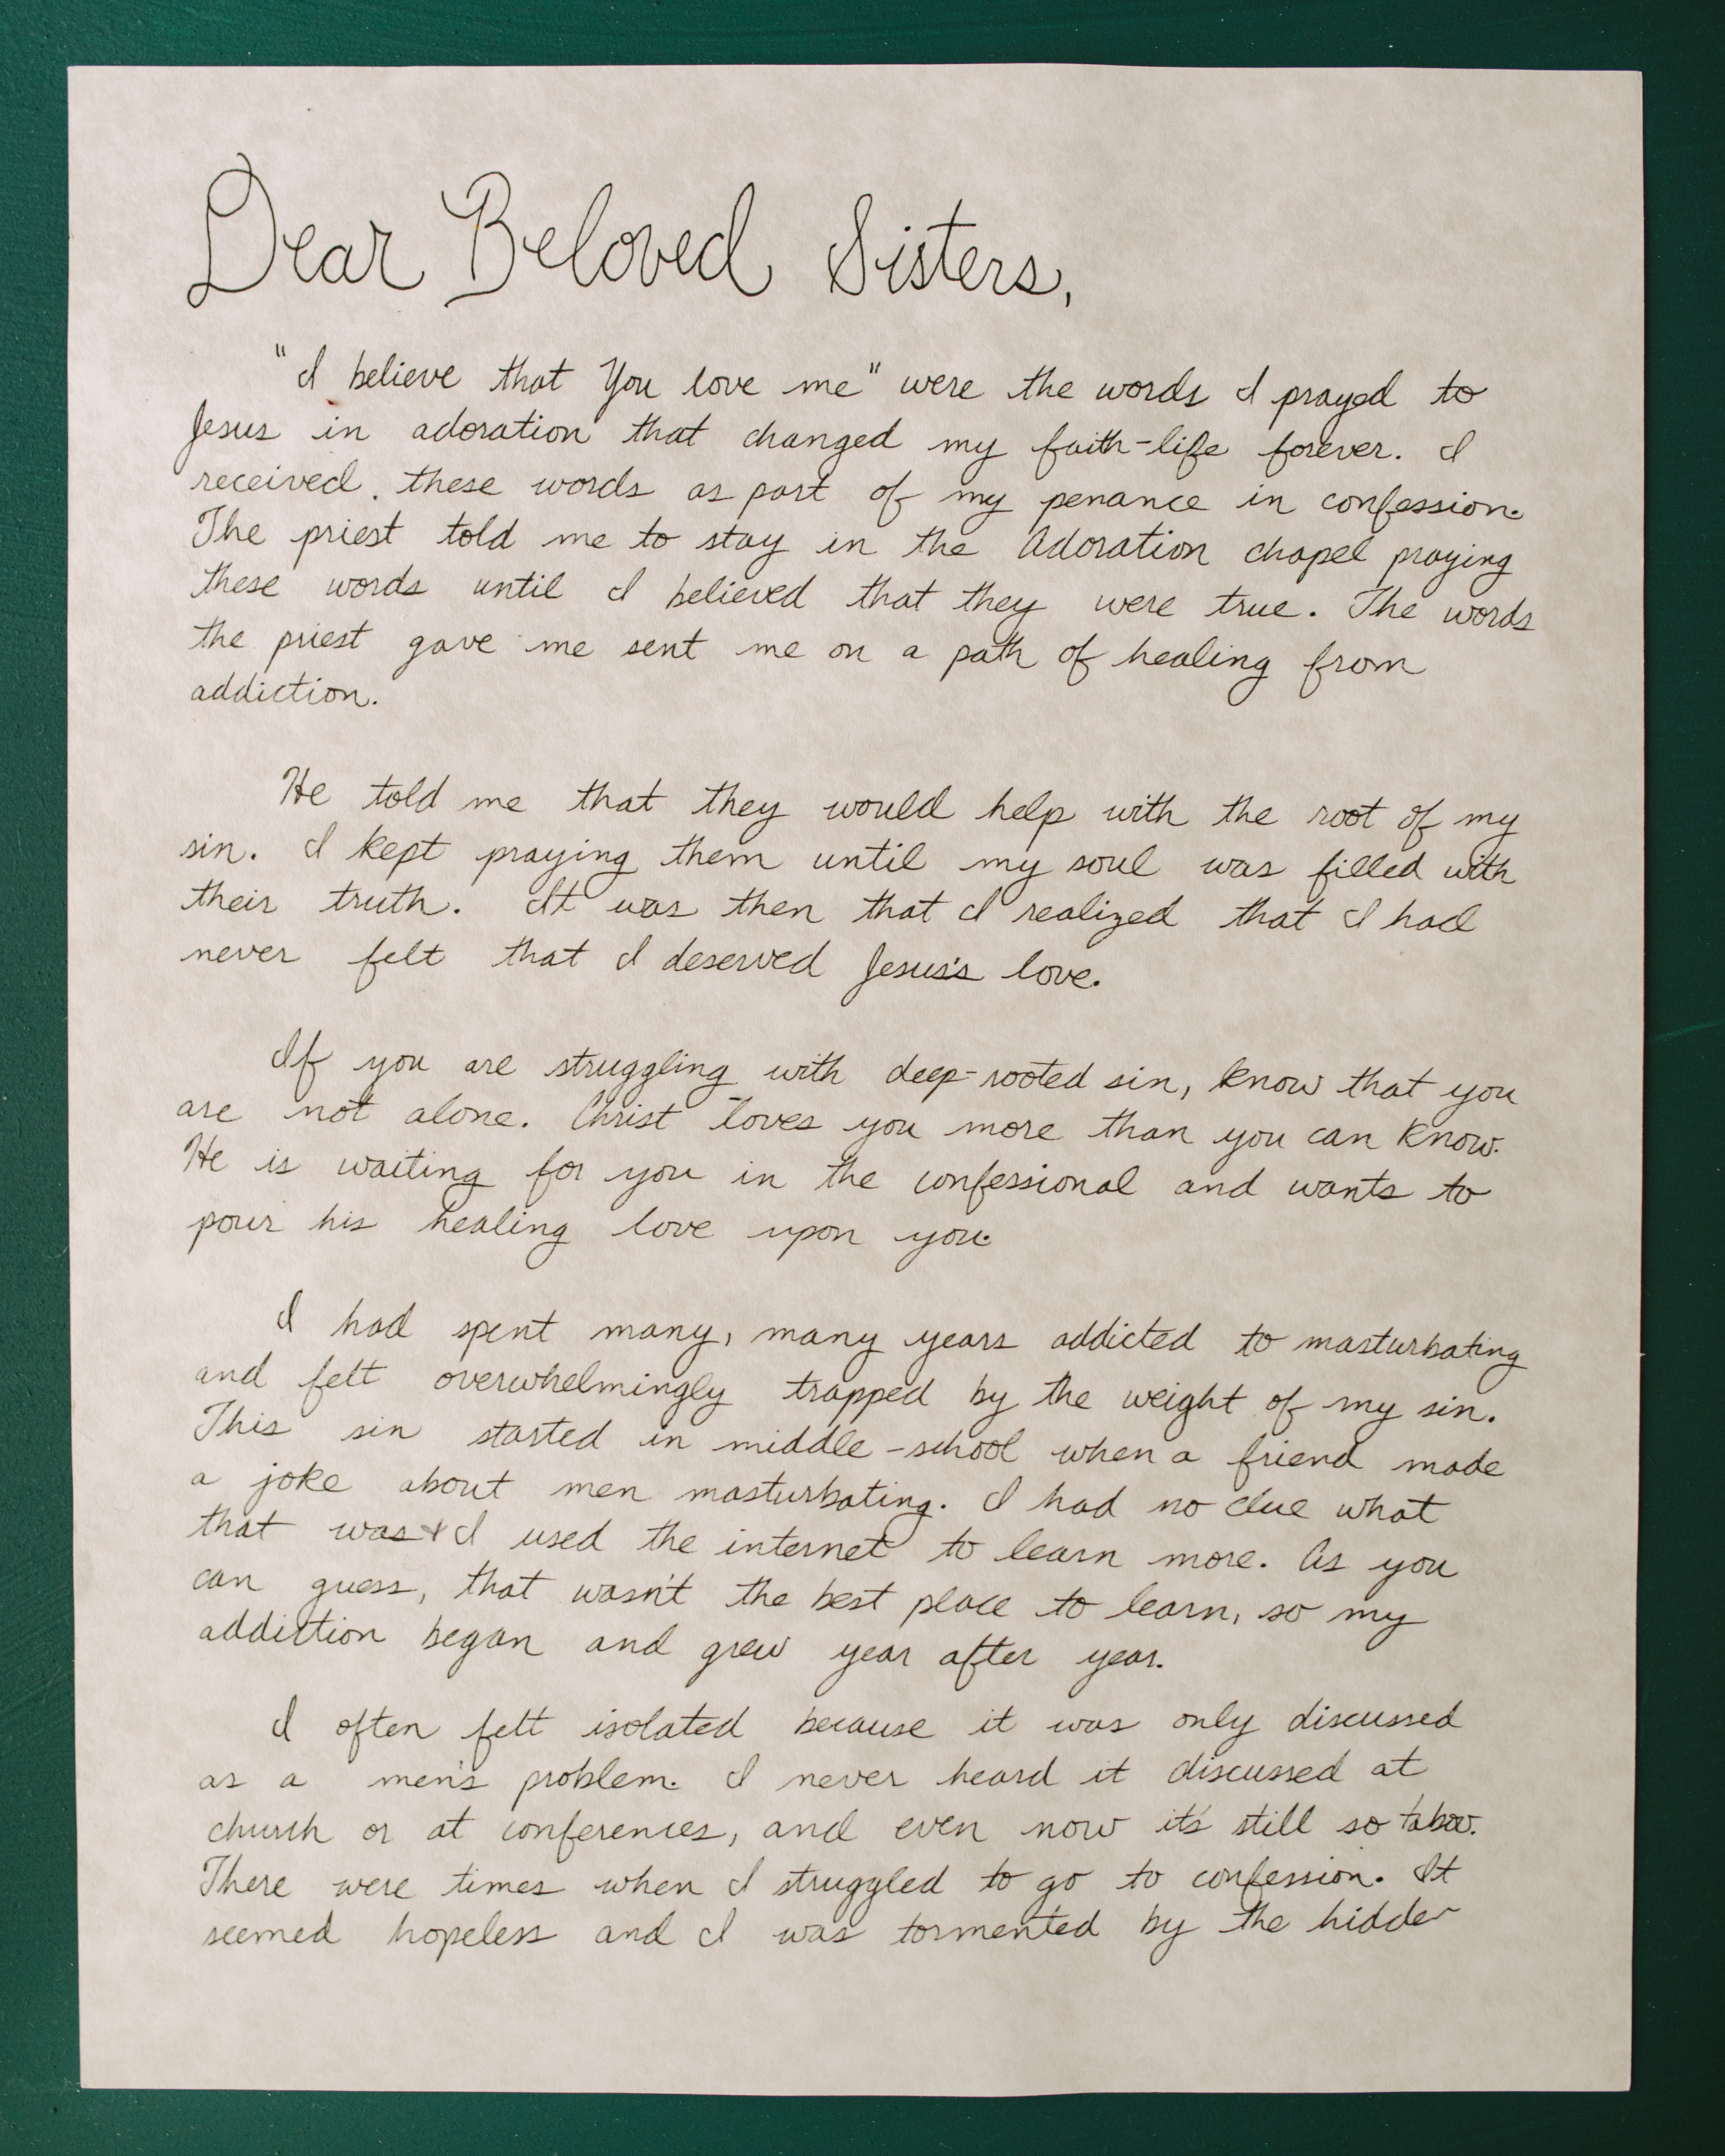 Dear Beloved Sisters,
"I believe that You love me" were the words I prayed to
Jesus in adoration that changed my faith-life forever. I
received these words as part of my penance in confession.
The priest told me to stay in the Adoration chapel praying
these words until I believed that they were true. The words
the priest gave me sent me on a path of healing from
addiction.
He told me that they would help with the root of my
sin. I kept praying them until my soul was filled with
their truth. It was then that I realized that I had
never felt that I deserved Jesus's love.
If you are struggling with deep-rooted sin, know that you
are not alone. Christ loves you more than you can know.
He is waiting for you in the confessional and wants to
pour his healing love upon you.
I had spent many, many years addicted to masturbating
and felt overwhelmingly trapped by the weight of my sin.
This sin started in middle-school when a friend made
a joke about men masturbating. I had no clue what
that was & I used the internet to learn more. As you
can guess, that wasn't the best place to learn, so my
addiction began and grew year after year.
I often felt isolated because it was only discussed
as a men's problem. I never heard it discussed at
church or at conferences, and even now it's still so taboo.
There were times when I struggled to go to confession. It
seemed hopeless and I was tormented by the hidden